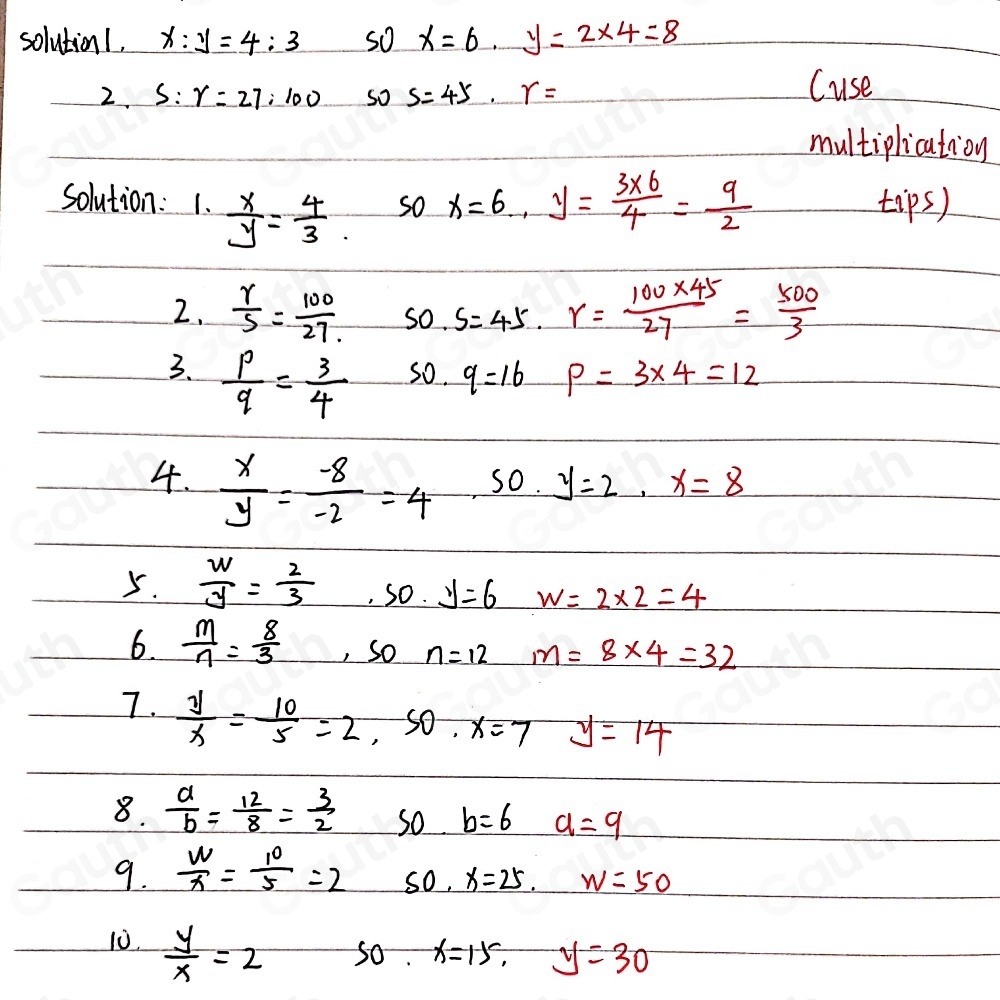 solution1. x:y=4:3 so x=6. y=2×4=8
2. s:r=27:100 so s=45. r= (use
multiplication
Solution: 1. x/y = 4/3. so x=6., y = 3×6/4 = 9/2 tips)
2. r/s = 100/27. so. s=45. r = 100×45/27 = 500/3
3. p/q = 3/4 so. q=16 p = 3×4=12
4. x/y = -8/-2 = 4 . so. y=2. x=8
5. w/y = 2/3 . so. y=6 w=2×2=4
6. m/n = 8/3 , so n=12 m= 8×4=32
7. y/x = 10/5 = 2, so. x=7 y=14
8. a/b = 12/8 = 3/2 so. b=6 a=9
9. w/x = 10/5 = 2 so. x=25. w=50
10. y/x = 2 so. x=15. y=30
Gauth